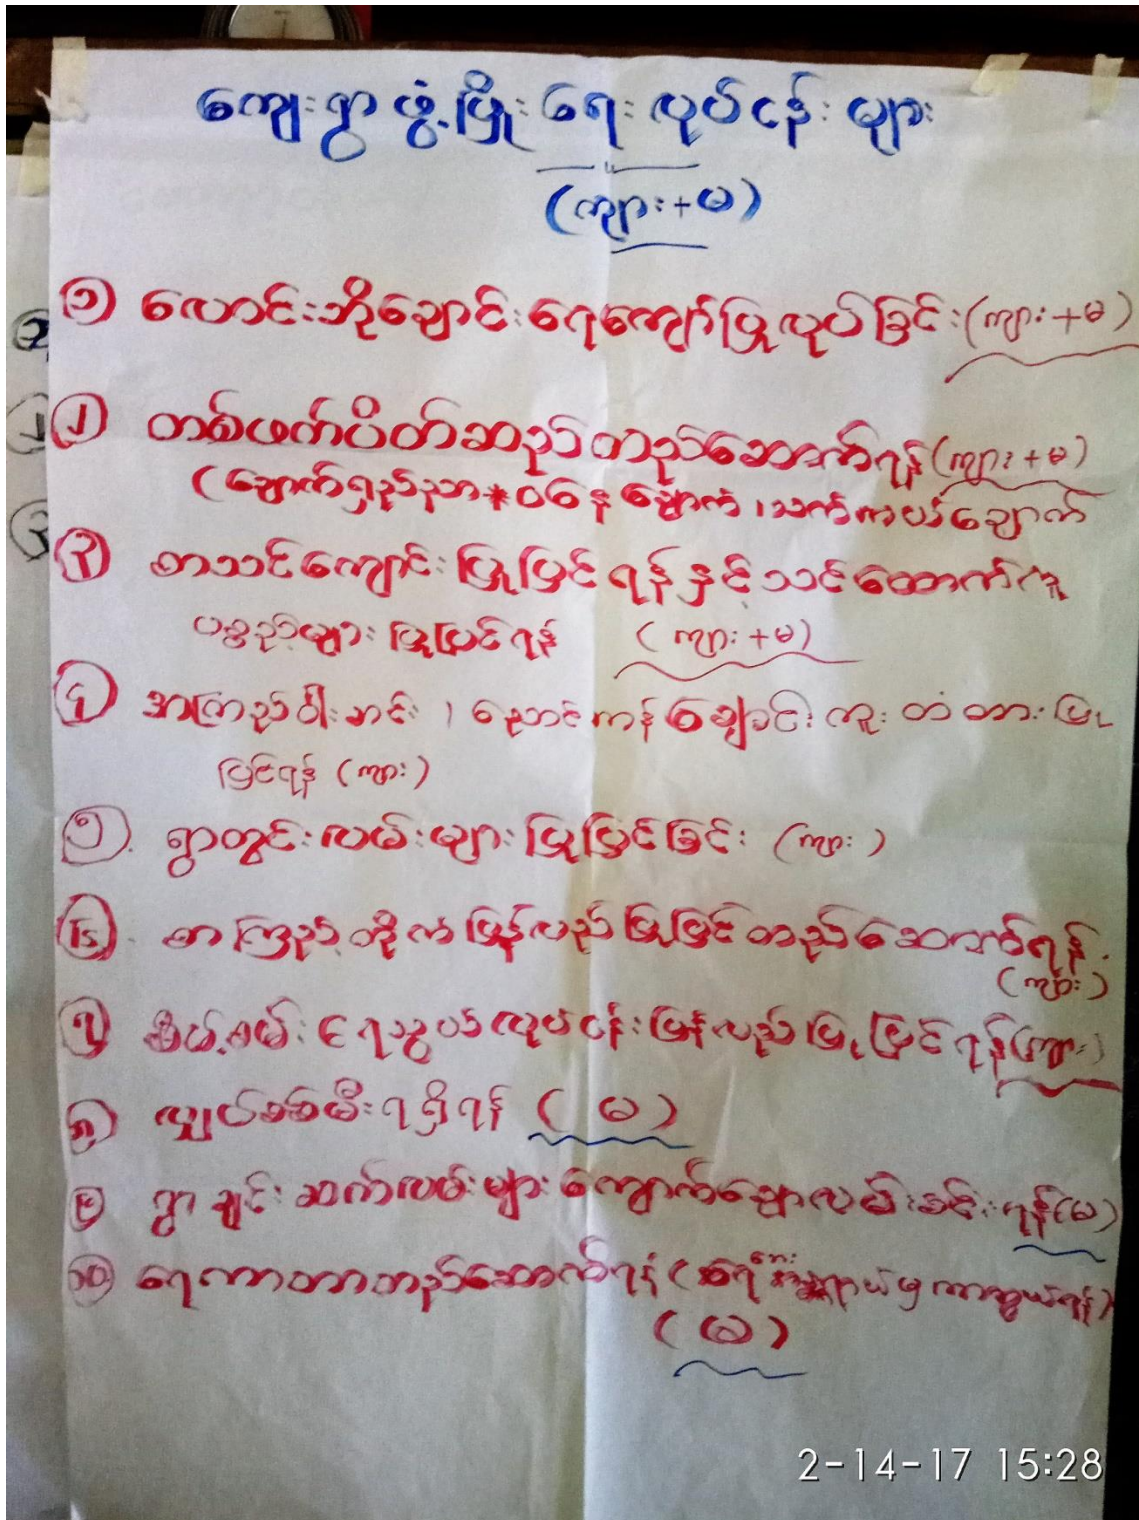 ကျေးရွာ ဖွံ့ဖြိုး ရေး လုပ်ငန်း များ
(ကျား+မ)
၁ လောင်းဘိုချောင်း ရေကျော်ပြုလုပ်ခြင်း (ကျား+မ)
၂ တစ်ဖက်ပိတ်ဆည် တည်ဆောက်ရန် (ကျား+မ)
၃ စာသင်ကျောင်း ပြုပြင်ရန်နှင့် သင်ထောက်ကူ
ပစ္စည်းများ ပြုပြင်ရန် (ကျား+မ)
၄ ချောင်းကူး တံတား ပြု
ပြင်ရန် (ကျား)
၅ ရွာတွင်းလမ်းများ ပြုပြင်ခြင်း (ကျား)
၆ စာကြည့်တိုက် ပြန်လည် ပြုပြင် တည်ဆောက်ရန်
(ကျား)
၇ စိမ့်စမ်း ရေသွယ် လုပ်ငန်း ပြန်လည် ပြုပြင်ရန် (ကျား)
၈ လျှပ်စစ်မီး ရရှိရန် (မ)
၉ ရွာချင်း ဆက်လမ်းများ ကျောက်ချောလမ်းခင်းရန် (မ)
၁၀ ရေကာတာတည်ဆောက်ရန် (ရေဘေး အန္တရာယ်မှ ကာကွယ်ရန်)
(မ)
2-14-17 15:28